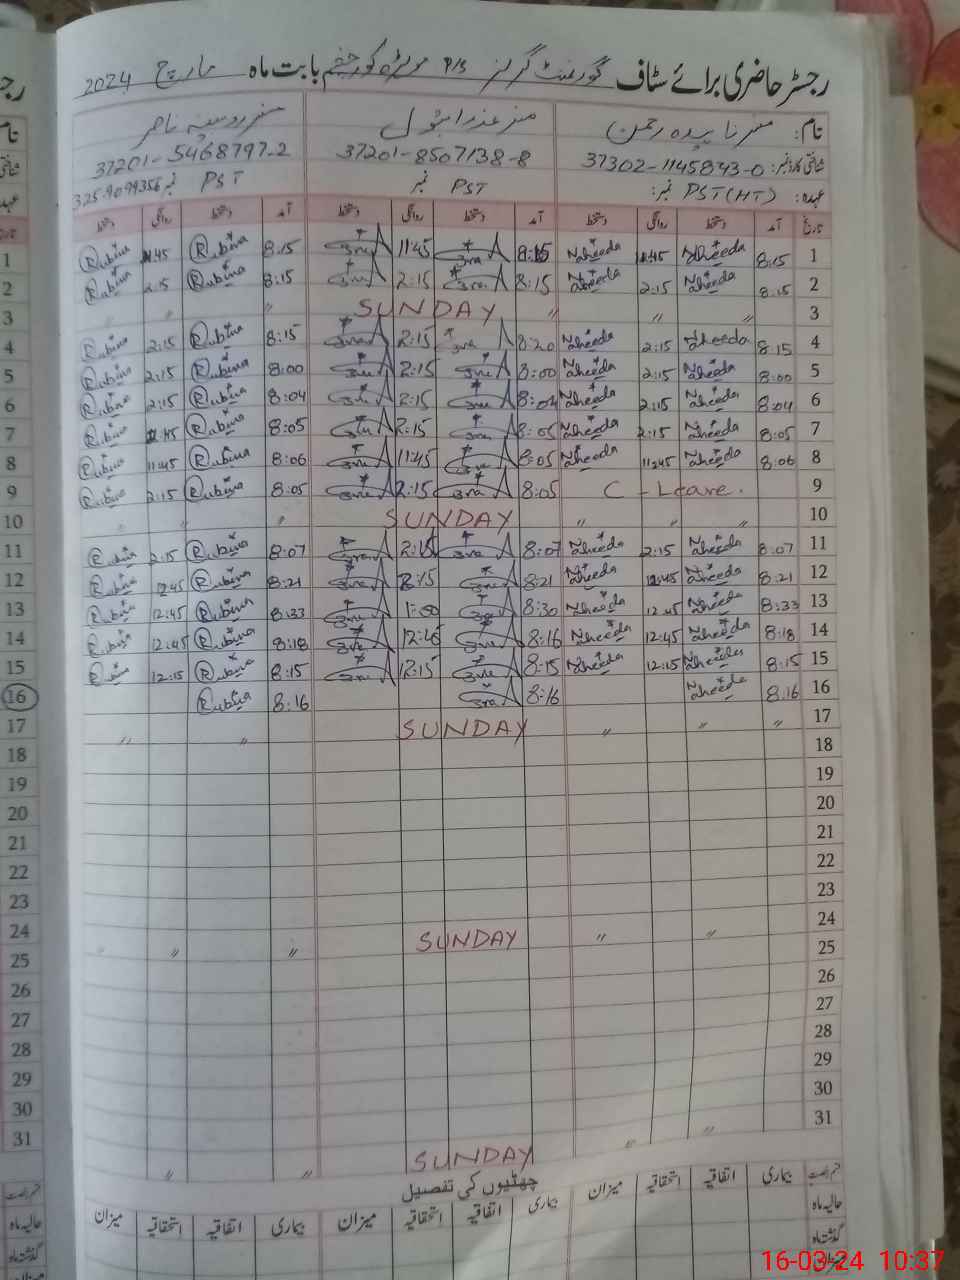 رجسٹر حاضری برائے سٹاف گورنمنٹ گرلز P/S موہڑہ کور چشم بابت ماہ مارچ 2024
نام: مسز ناہیدہ رحمن مسز عذرا بتول مسز روبینہ ناصر
شناختی کارڈ نمبر: 37302-1145843-0 37201-8507138-8 37201-5468797-2
عہدہ: PST(HT) نمبر: PST نمبر PST نمبر 325-9099356
تاریخ آمد دستخط روانگی دستخط آمد دستخط روانگی دستخط آمد دستخط روانگی دستخط
1 8:15 Naheeda 11:45 Naheeda 8:15 11:45 8:15 Rubina 11:45 Rubina
2 8:15 Naheeda 2:15 Naheeda 8:15 2:15 8:15 Rubina 2:15 Rubina
3 〃 〃 〃 SUNDAY 〃 〃 〃
4 8:15 Naheeda 2:15 Naheeda 8:20 2:15 8:15 Rubina 2:15 Rubina
5 8:00 Naheeda 2:15 Naheeda 8:00 2:15 8:00 Rubina 2:15 Rubina
6 8:04 Naheeda 2:15 Naheeda 8:04 2:15 8:04 Rubina 2:15 Rubina
7 8:05 Naheeda 2:15 Naheeda 8:05 2:15 8:05 Rubina Rubina
8 8:06 Naheeda 11:45 Naheeda 8:05 11:45 8:06 Rubina 11:45 Rubina
9 C-Leave. 8:05 2:15 8:05 Rubina 2:15 Rubina
10 〃 〃 〃 SUNDAY 〃 〃 〃
11 8:07 Naheeda 2:15 Naheeda 8:07 2:15 8:07 Rubina 2:15 Rubina
12 8:21 Naheeda 12:45 Naheeda 8:21 8:21 Rubina 12:45 Rubina
13 8:33 Naheeda 12:45 Naheeda 8:30 1:00 8:33 Rubina 12:45 Rubina
14 8:18 Naheeda 12:45 Naheeda 8:16 8:18 Rubina 12:45 Rubina
15 8:15 Naheeda 12:15 Naheeda 8:15 12:15 8:15 Rubina 12:15 Rubina
16 8:16 Naheeda 8:16 8:16 Rubina
17 〃 〃 〃 SUNDAY 〃 〃
18
19
20
21
22
23
24 〃 〃 SUNDAY 〃 〃 〃
25
26
27
28
29
30
31 〃 〃 SUNDAY 〃 〃
چھٹیوں کی تفصیل
بیماری اتفاقیہ استحقاقیہ میزان بیماری اتفاقیہ استحقاقیہ میزان بیماری اتفاقیہ استحقاقیہ میزان
حالیہ ماہ
گذشتہ ماہ
16-03-24 10:37